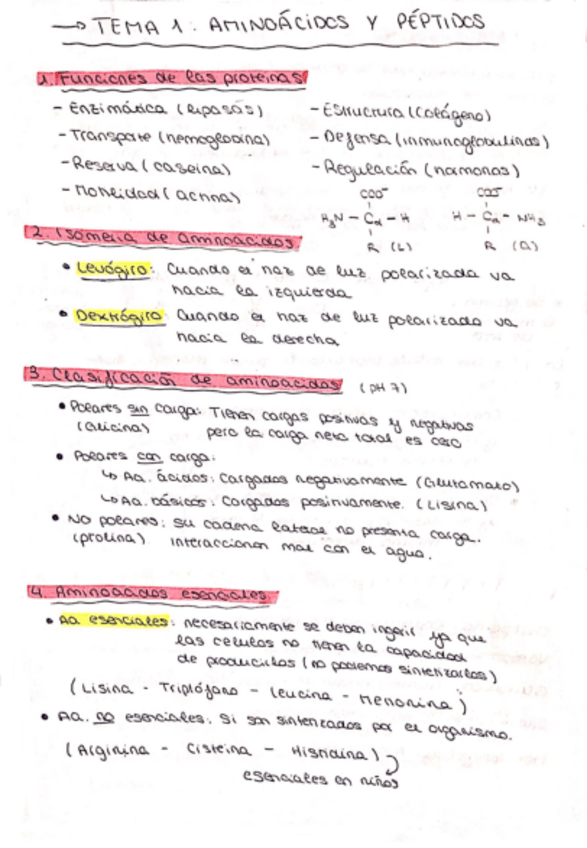 → TEMA 1: AMINOÁCIDOS Y PÉPTIDOS
1. Funciones de las proteínas
- Enzimática (lipasas)
- Transporte (hemoglobina)
- Reserva (caseína)
- Motilidad (actina)
- Estructura (Colágeno)
- Defensa (inmunoglobulinas)
- Regulación (hormonas)
COO⁻ COO⁻
H₃N - Cα - H H - Cα - NH₃
R (L) R (D)
2. Isomería de aminoácidos
• Levógiro: Cuando el haz de luz polarizada va
hacia la izquierda
• Dextrógiro Cuando el haz de luz polarizada va
hacia la derecha
3. Clasificación de aminoácidos (pH 7)
• Polares sin carga: Tienen cargas positivas y negativas
(Glicina) pero la carga neta total es cero
• Polares con carga:
↳ Aa. ácidos: Cargados negativamente (Glutamato)
↳ Aa. básicos: Cargados positivamente. (Lisina)
• No polares: su cadena lateral no presenta carga.
(prolina) interaccionan mal con el agua.
4. Aminoácidos esenciales
• Aa esenciales: necesariamente se deben ingerir ya que
las células no tienen la capacidad
de producirlos (no podemos sintetizarlos)
(Lisina - Triptófano - Leucina - Metionina)
• Aa. no esenciales: Si son sintetizados por el organismo.
(Arginina - Cisteína - Histidina)
esenciales en niños